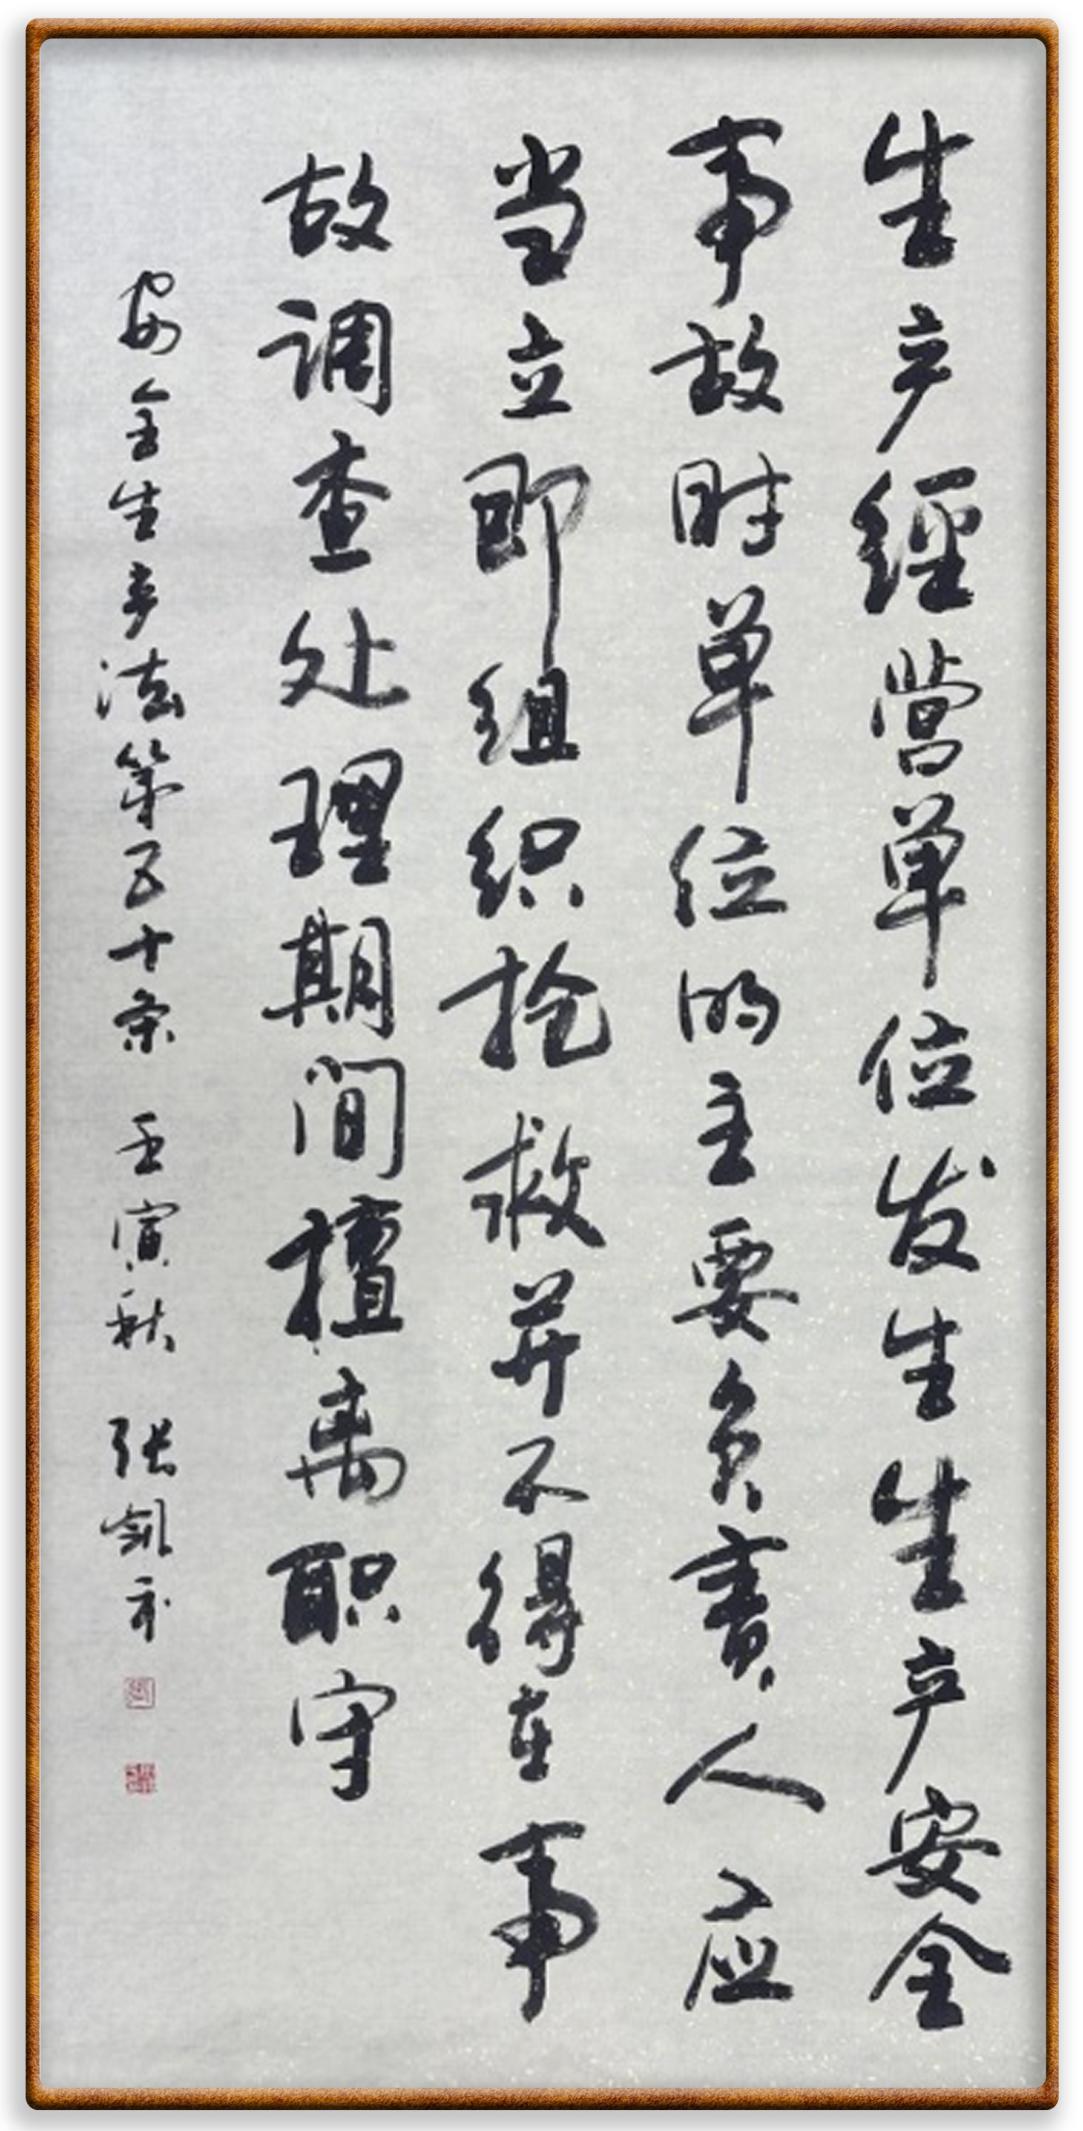 生产經營单位发生生产安全
事故时单位的主要负责人应
当立即组织抢救并不得在事
故调查处理期间擅离职守
安全生产法第五十条 壬寅秋 张